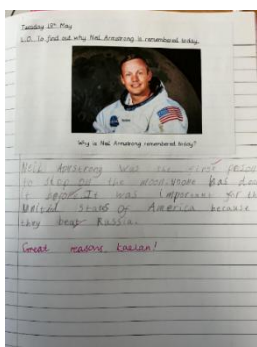 Tuesday 18th May
L.O. To find out why Neil Armstrong is remembered today.
Why is Neil Armstrong remembered today?
Neil Armstrong was the first person
to step on the moon. noone has done
it before. It was important for the
United States of America because
they beat Russia.
Great reasons Kaelan!